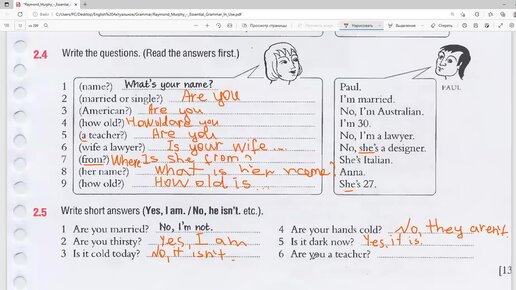 "Raymond_Murphy_-_Essential_
C:/Users/PC/Desktop/English%20Актуальное/Grammar/Raymond_Murphy_-_Essential_Grammar_In_Use.pdf
Просмотр страницы
Нарисовать
2.4 Write the questions. (Read the answers first.)
1 (name?) What's your name? Paul.
2 (married or single?) Are you I'm married.
3 (American?) Are you No, I'm Australian.
4 (how old?) How old are you I'm 30.
5 (a teacher?) Are you No, I'm a lawyer.
6 (wife a lawyer?) Is your wife... No, she's a designer.
7 (from?) Where Is she from? She's Italian.
8 (her name?) What is her name? Anna.
9 (how old?) How old is... She's 27.
PAUL
2.5 Write short answers (Yes, I am. / No, he isn't. etc.).
1 Are you married? No, I'm not.
2 Are you thirsty? Yes, I am
3 Is it cold today? No, it isn't.
4 Are your hands cold? No, they aren't
5 Is it dark now? Yes, it is.
6 Are you a teacher?
[13